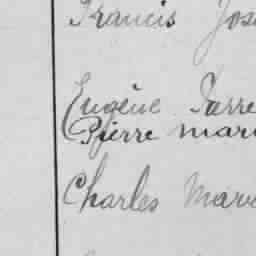 Francis Jos
Eugène Parre
Pierre mari
Charles Mari